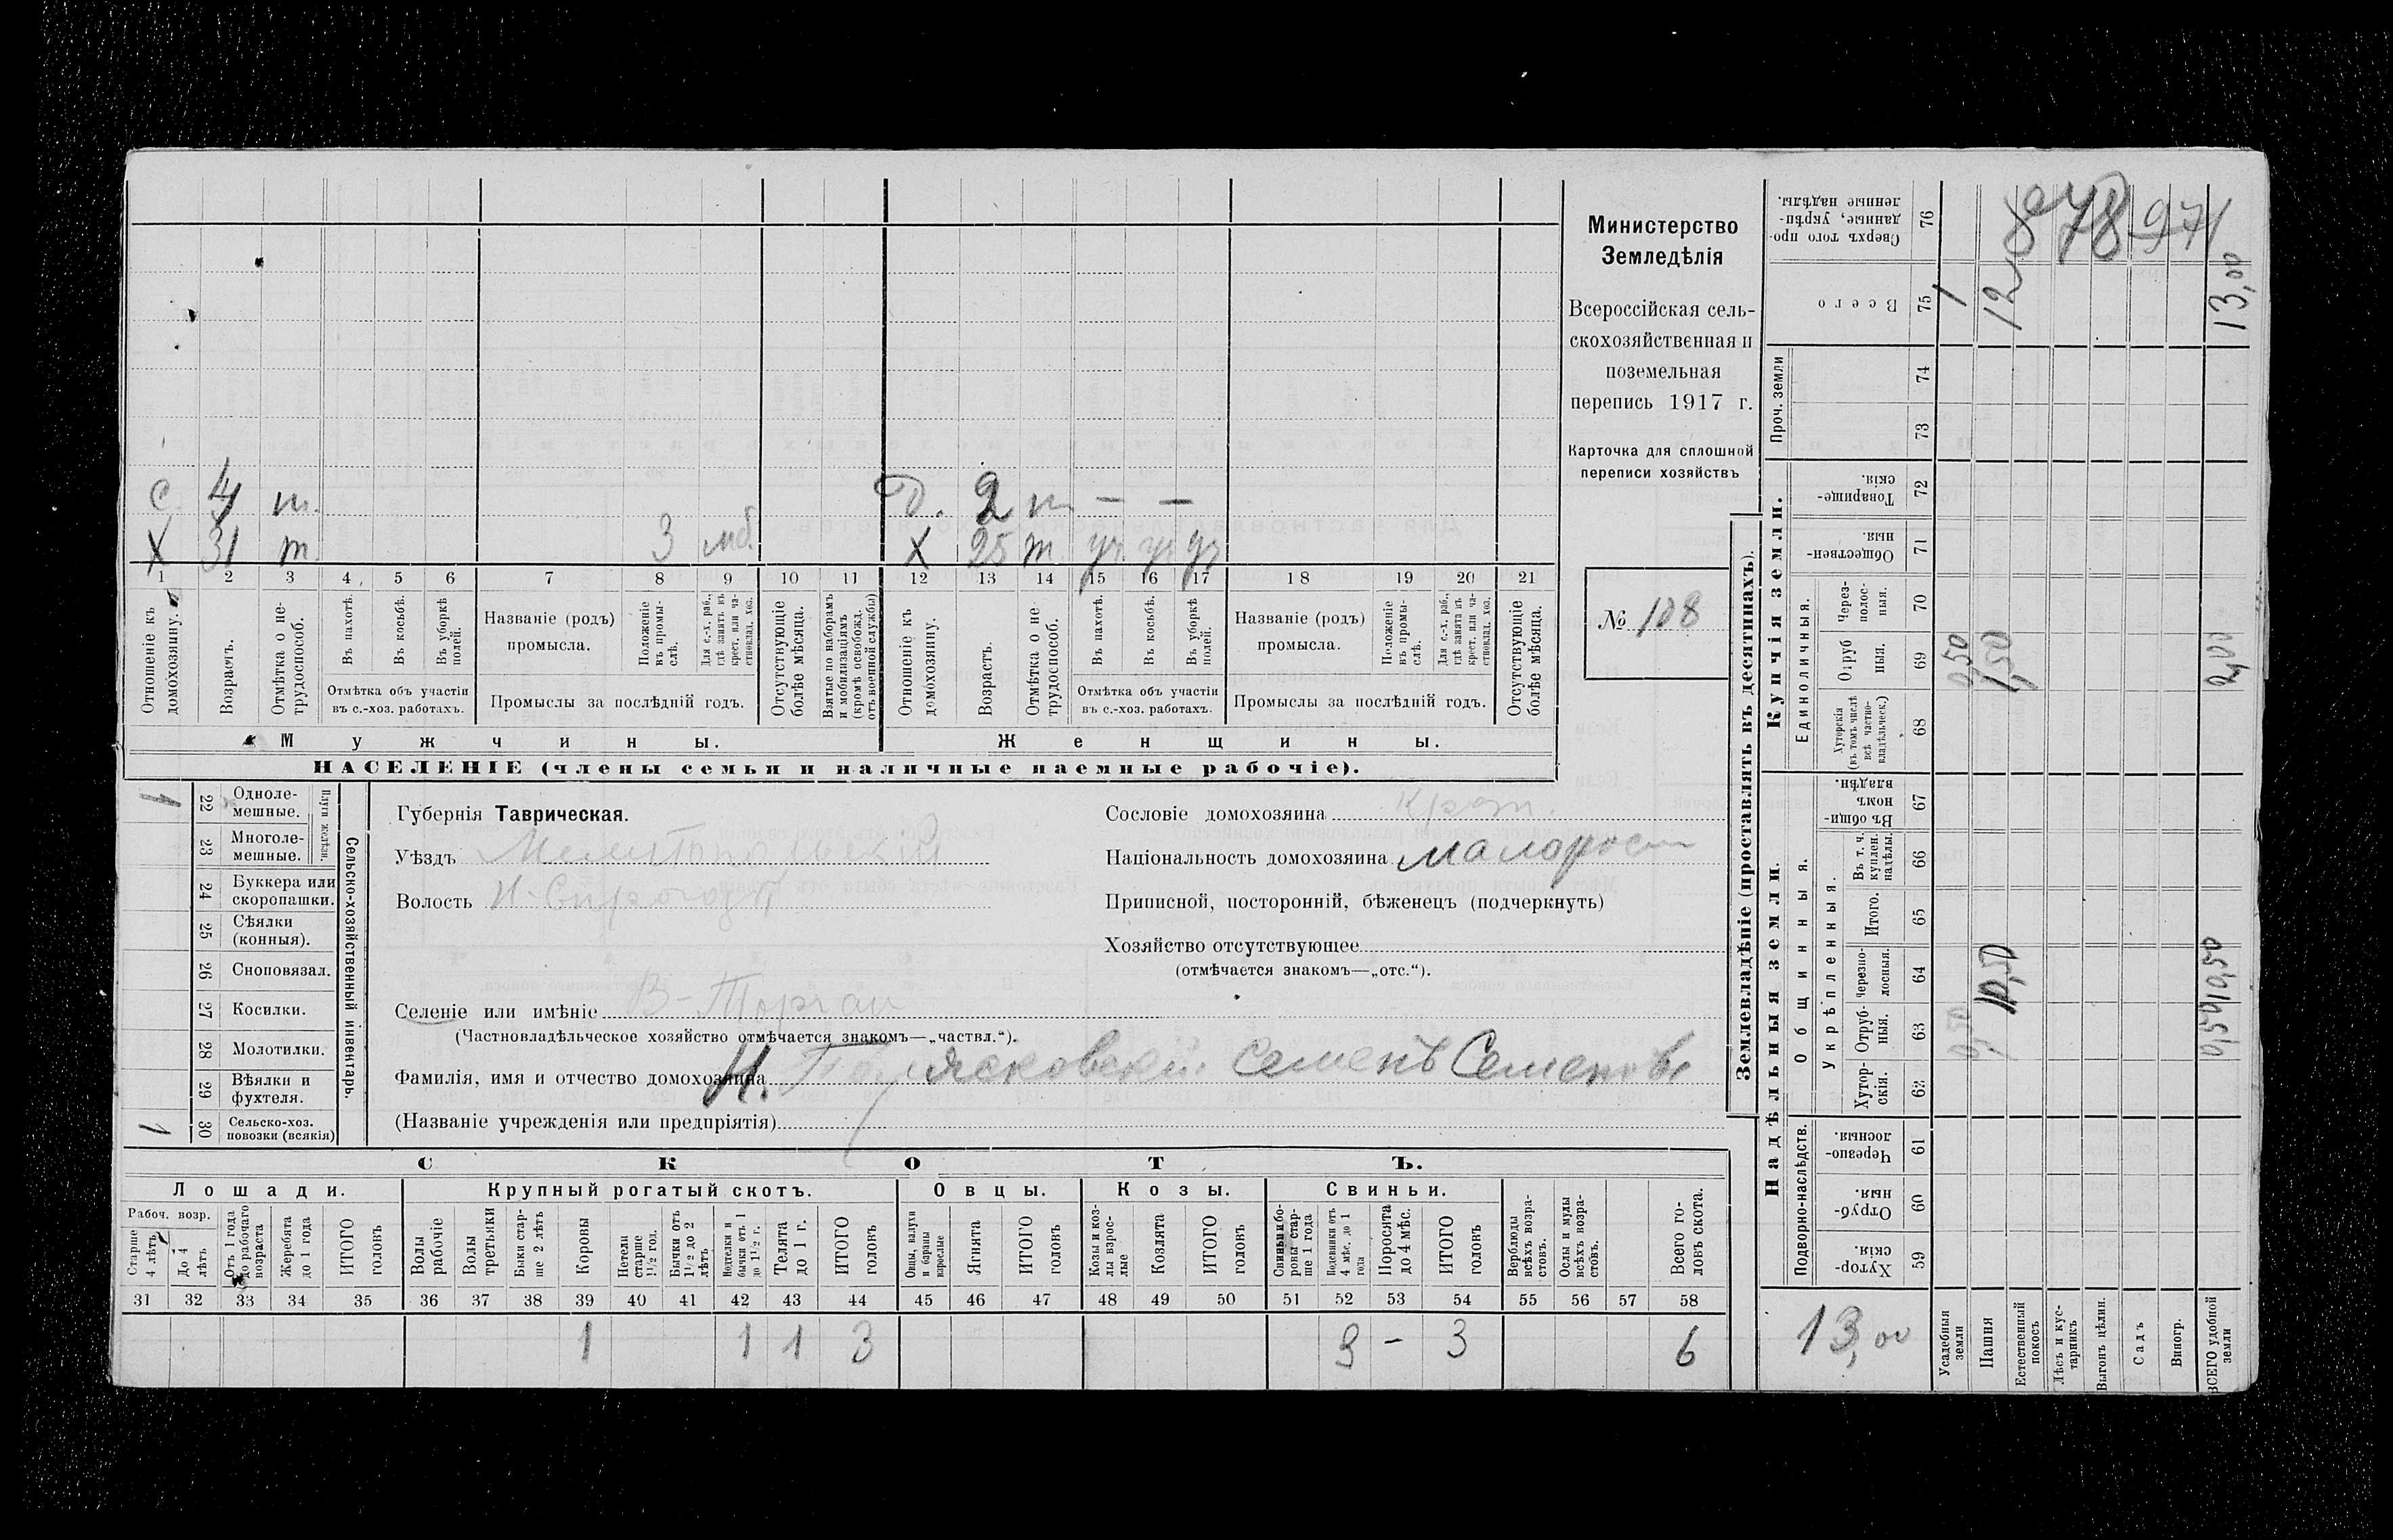 Министерство
Земледѣлія
Всероссійская сель-
скохозяйственная и
поземельная
перепись 1917 г.
Карточка для сплошной
переписи хозяйствъ
№ 108
С. 4 т. Д. 2 т — —
Х 31 т. 3 Х 25 т уч уч уч
1 2 3 4 5 6 7 8 9 10 11 12 13 14 15 16 17 18 19 20 21
Отношеніе къ домохозяину.
Возрастъ.
Отмѣтка о не-трудоспособ.
Въ пахотѣ.
Въ косьбѣ.
Въ уборкѣ полей.
Отмѣтка объ участіи
въ с.-хоз. работахъ.
Названіе (родъ)
промысла.
Положеніе въ промы-слѣ.
Для с.-х. раб., гдѣ занятъ въ крест. или ча-стновлад. хоз.
Промыслы за послѣдній годъ.
Отсутствующіе болѣе мѣсяца.
Взятые по наборамъ и мобилизаціямъ (кромѣ освобожд. отъ военной службы)
Отношеніе къ домохозяину.
Возрастъ.
Отмѣтка о не-трудоспособ.
Въ пахотѣ.
Въ косьбѣ.
Въ уборкѣ полей.
Отмѣтка объ участіи
въ с.-хоз. работахъ.
Названіе (родъ)
промысла.
Положеніе въ промы-слѣ.
Для с.-х. раб., гдѣ занята въ крест. или ча-стновлад. хоз.
Промыслы за послѣдній годъ.
Отсутствующіе болѣе мѣсяца.
Мужчины. Женщины.
НАСЕЛЕНІЕ (члены семьи и наличные наемные рабочіе).
Сельско-хозяйственный инвентарь.
Плуги желѣзн.
1 22 Одноле-мешные.
23 Многоле-мешные.
24 Буккера или скоропашки.
25 Сѣялки (конныя).
26 Сноповязал.
27 Косилки.
28 Молотилки.
29 Вѣялки и фухтеля.
1 30 Сельско-хоз. повозки (всякія)
Губернія Таврическая.
Уѣздъ Мелитопольскій
Волость Н-Сирогозск
Селеніе или имѣніе В-Торгаи
(Частновладѣльческое хозяйство отмѣчается знакомъ—„частвл.“).
Фамилія, имя и отчество домохозяина Семенъ Семеновъ
(Названіе учрежденія или предпріятія)
Сословіе домохозяина крест.
Національность домохозяина малоросс
Приписной, посторонній, бѣженецъ (подчеркнуть)
Хозяйство отсутствующее
(отмѣчается знакомъ—„отс.“).
СКОТЪ.
Лошади. Крупный рогатый скотъ. Овцы. Козы. Свиньи.
Рабоч. возр.
Старше 4 лѣтъ
До 4 лѣтъ
Отъ 1 года до рабочаго возраста
Жеребята до 1 года
ИТОГО головъ
Волы рабочіе
Волы третьяки
Быки стар-ше 2 лѣтъ
Коровы
Нетели старше 1½ год.
Бычки отъ 1½ до 2 лѣтъ
Подтелки и бычки отъ 1 до 1½ г.
Телята до 1 г.
ИТОГО головъ
Овцы, валухи и бараны взрослые
Ягнята
ИТОГО головъ
Козы и коз-лы взрос-лые
Козлята
ИТОГО головъ
Свиньи и бо-ровы стар-ше 1 года
Подсвинки отъ 4 мѣс. до 1 года
Поросята до 4 мѣс.
ИТОГО головъ
Верблюды всѣхъ возра-стовъ.
Ослы и мулы всѣхъ возра-стовъ.
Всего го-ловъ скота.
31 32 33 34 35 36 37 38 39 40 41 42 43 44 45 46 47 48 49 50 51 52 53 54 55 56 57 58
1 1 1 3 3 — 3 6
Землевладѣніе (проставлять въ десятинахъ).
Надѣльныя земли. Купчія земли. Проч. земли
Подворно-наслѣдств.
Общинныя.
Укрѣпленныя.
Единоличныя.
Хутор-скія. 59
Отруб-ныя. 60
Черезпо-лосныя. 61
Хутор-скія. 62
Отруб-ныя. 63
Черезпо-лосныя. 64
Итого. 65
Въ т. ч. куплен. надѣлы. 66
Въ общи-номъ владѣн. 67
Хуторскія (въ томъ числѣ всѣ частно-владѣльческ.) 68
Отруб ныя. 69
Через-полос-ныя. 70
Обществен-ныя. 71
Товарище-скія. 72
73
74
Всего 75
Сверхъ того про-данные, укрѣп-ленные надѣлы. 76
13,00
Усадебныя земли 0,50 0,50 1
Пашня 10,50 1,50 12
Естественный покосъ
Лѣсъ и кус-тарникъ
Выгонъ цѣлин.
Садъ
Виногр.
ВСЕГО удобной земли 2,00 13,00
878
971